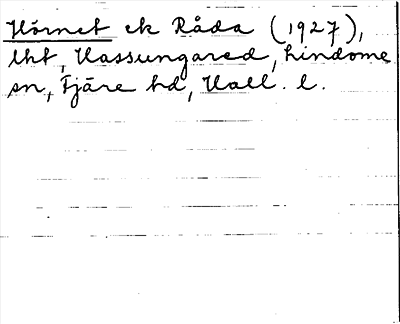 Hörnet ek Råda (1927),
lht, Hassungared, Lindome
sn, Fjäre hd, Hall. l.